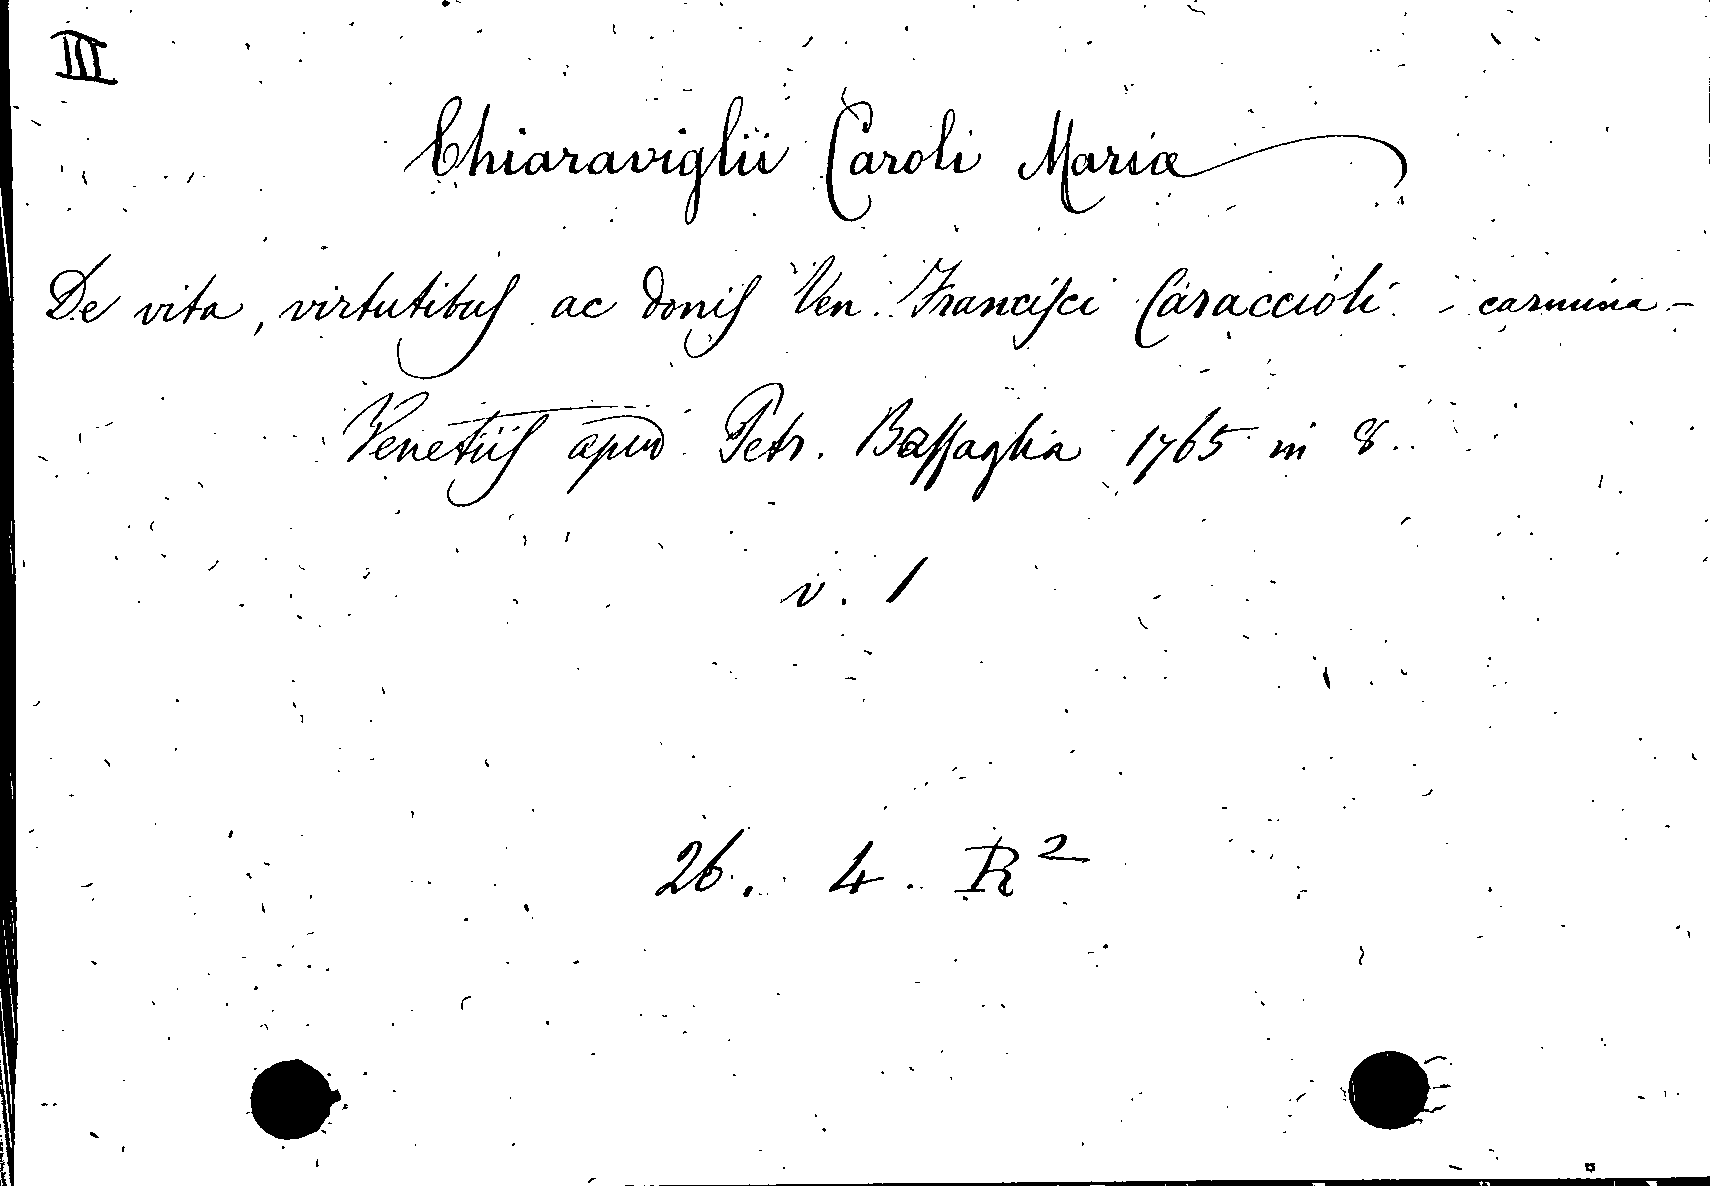 III
Chiaraviglii Caroli Mariæ
De vita, virtutibus ac donis Ven. Francisci Caraccioli - carmina -
Venetiis apud Petr. Bassaglia 1765 in 8.
v. 1
26. 4. R²